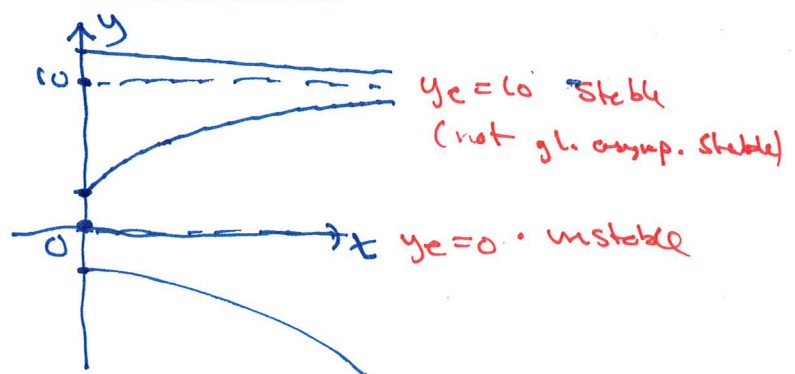 y
10
ye = 10 stable
(not gl. asymp. stable)
0
t ye = 0 . unstable